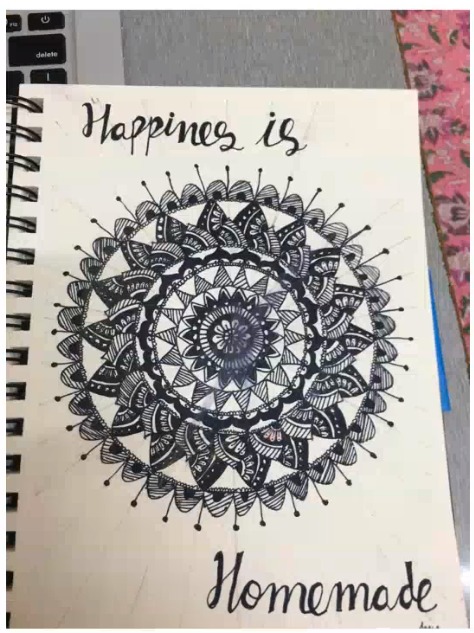 delete
"Happines is
Homemade